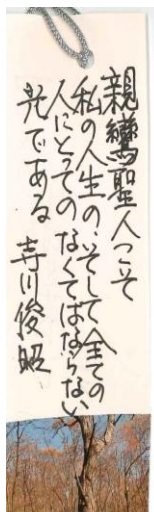 親鸞聖人こそ
私の人生の、そして全ての
人にとってのなくてはならない
光である 寺川俊昭